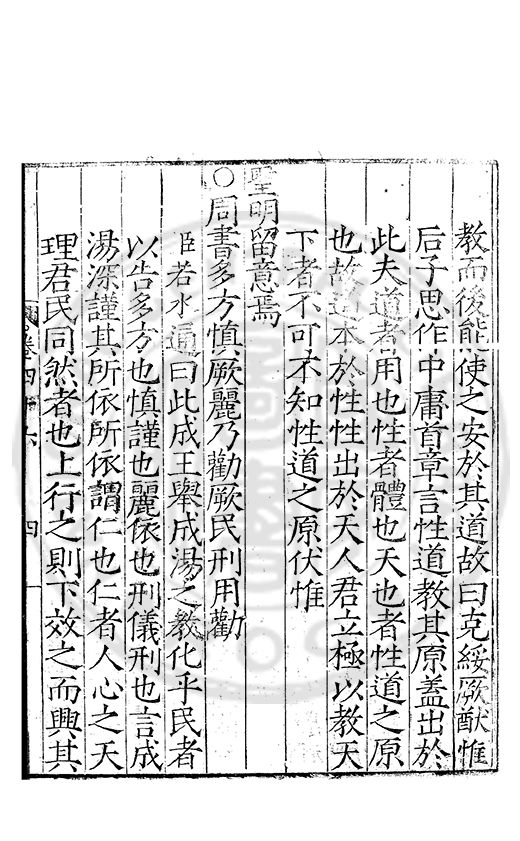 教而後能使之安於其道故曰克綏厥猷惟
后子思作中庸首章言性道教其原蓋出於
此夫道者用也性者體也天也者性道之原
也故道本於性性出於天人君立極以教天
下者不可不知性道之原伏惟
聖明留意焉
○周書多方慎厥麗乃勸厥民刑用勸
臣若水通曰此成王舉成湯之教化乎民者
以告多方也慎謹也麗依也刑儀刑也言成
湯深謹其所依所依謂仁也仁者人心之天
理君民同然者也上行之則下效之而興其
卷四十六
四